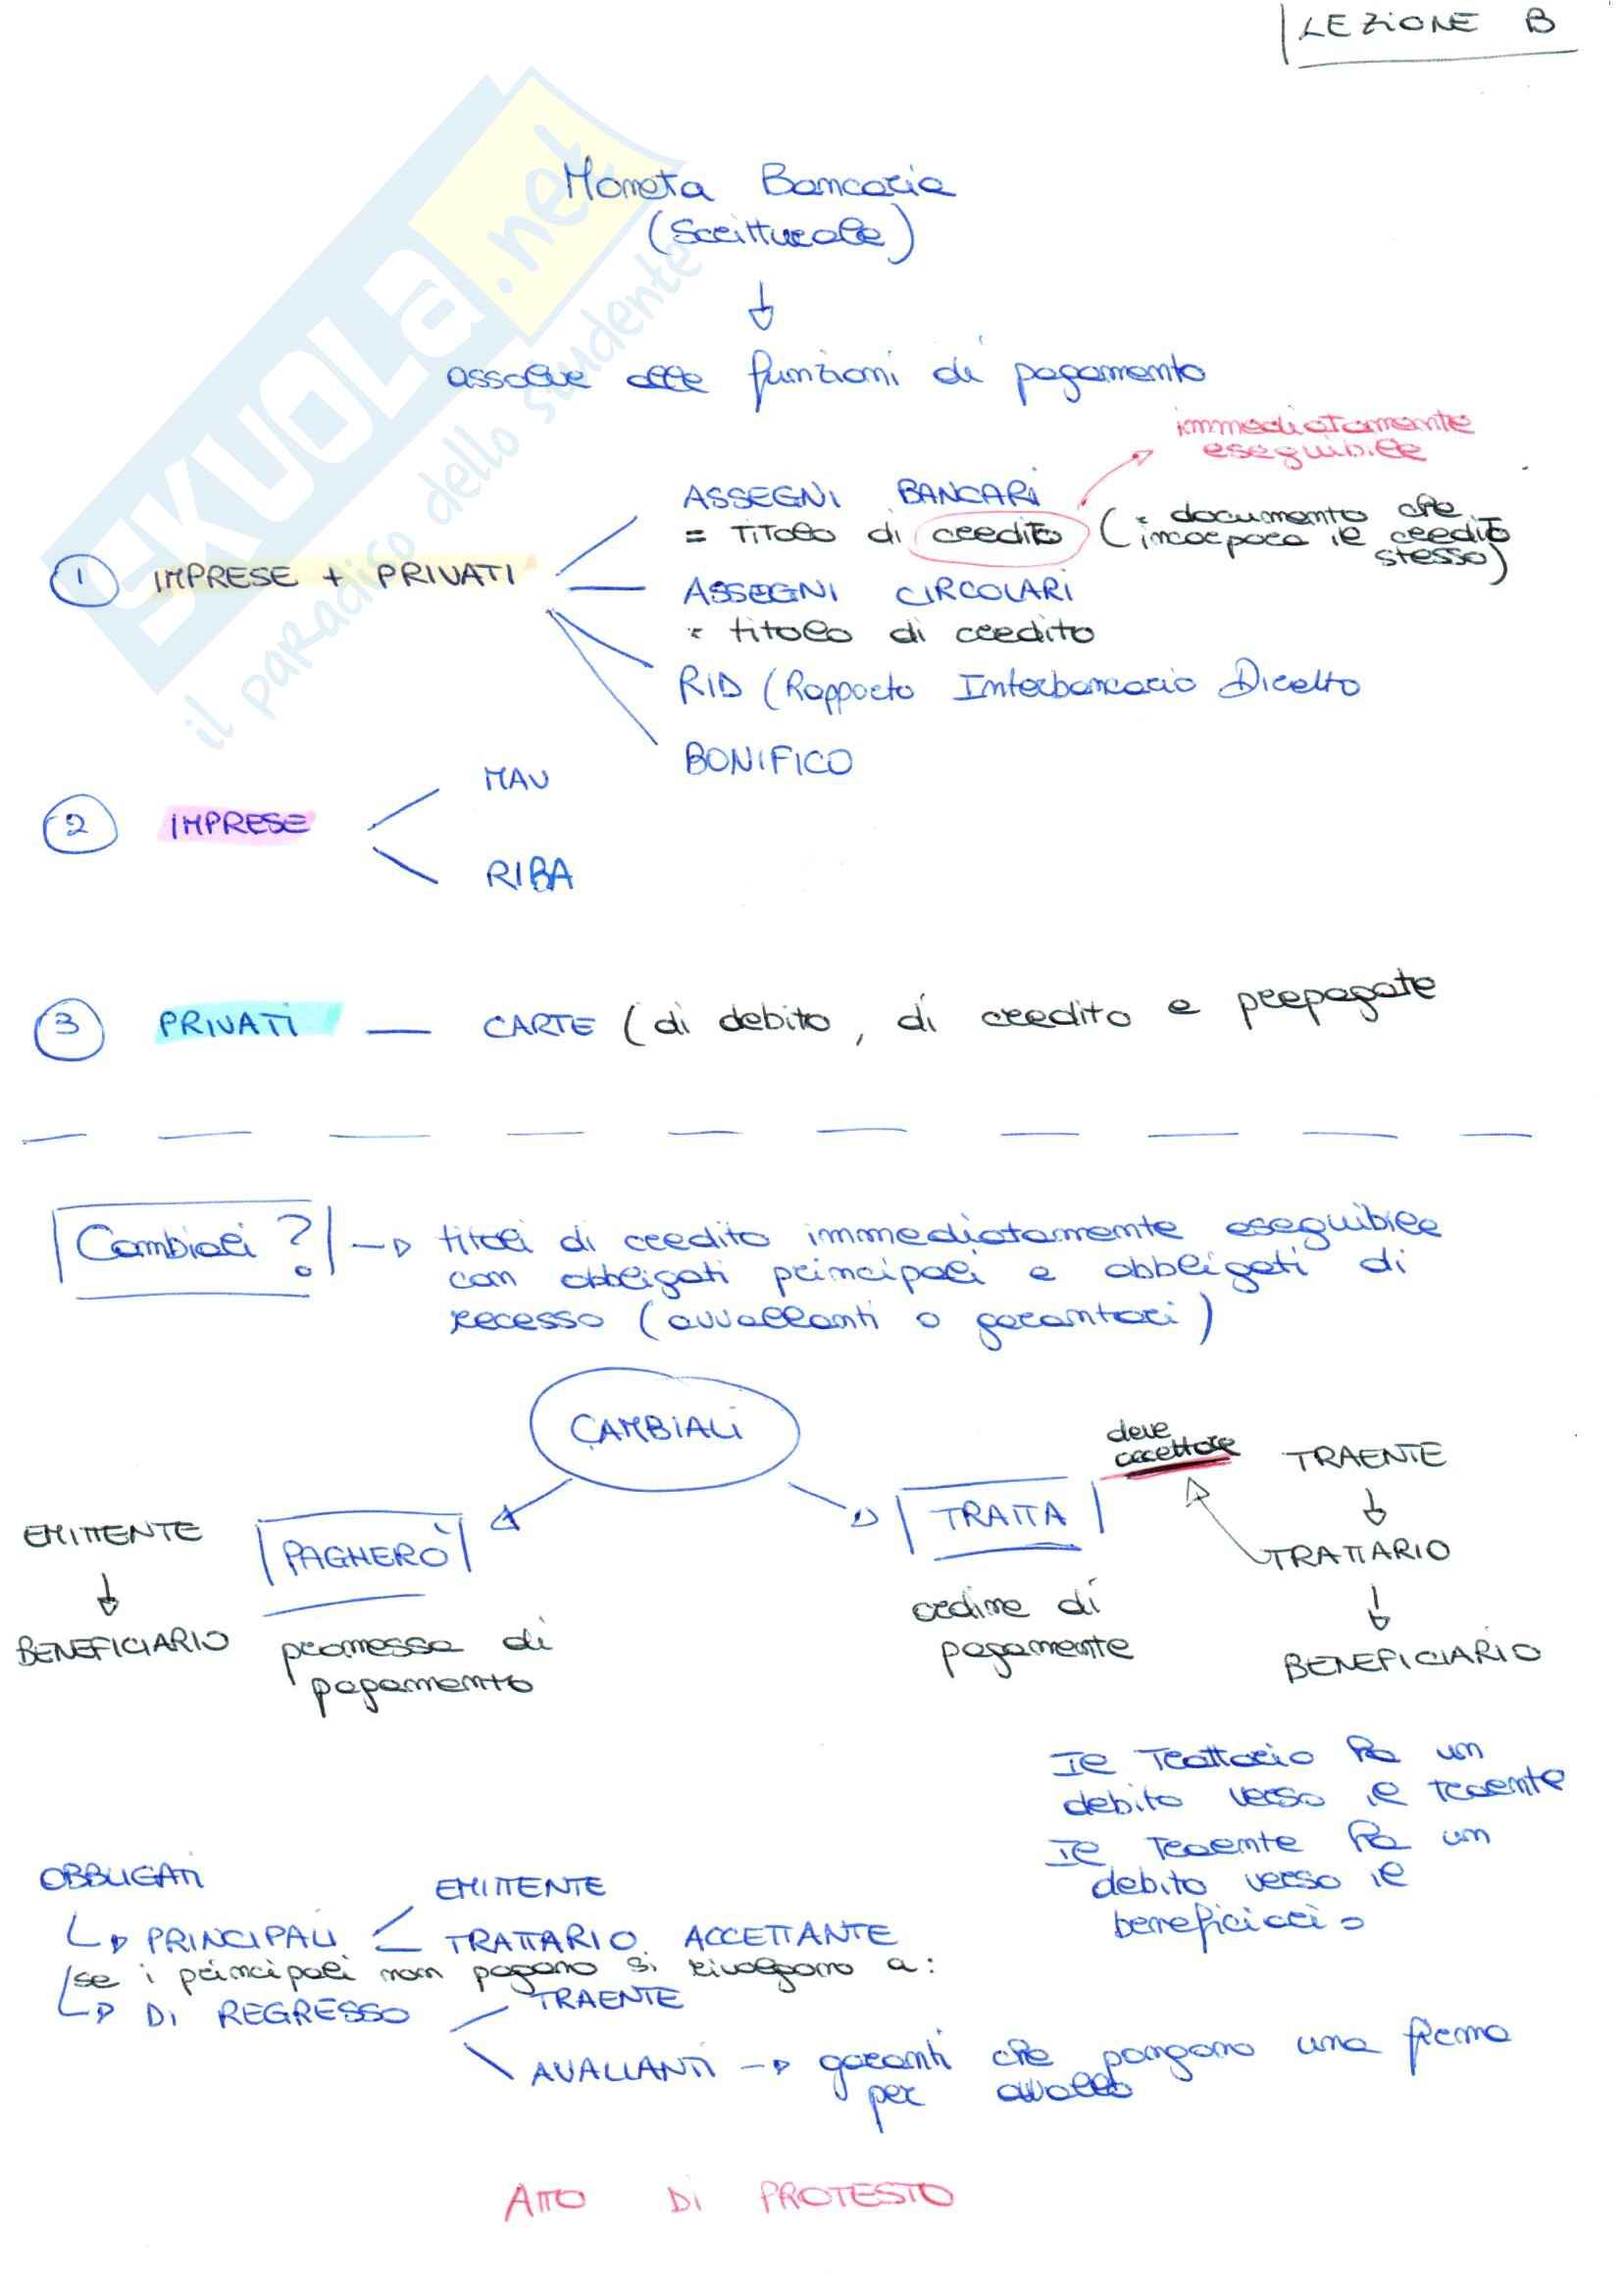 LEZIONE B
Moneta Bancaria
(Scritturale)
assolve alle funzioni di pagamento
immediatamente
eseguibile
ASSEGNI BANCARI
= TITOLO di credito (= documento che
incorpora il credito
stesso)
1 IMPRESE + PRIVATI
ASSEGNI CIRCOLARI
= titolo di credito
RID (Rapporto Interbancario Diretto
BONIFICO
MAV
2 IMPRESE
RIBA
3 PRIVATI — CARTE (di debito, di credito e prepagate
Cambiali ? → titoli di credito immediatamente eseguibile
con obbligati principali e obbligati di
recesso (avvallanti o garantari)
CAMBIALI
deve
accettare
TRAENTE
TRATTA
EMITTENTE
PAGHERÒ
TRATTARIO
ordine di
pagamente
BENEFICIARIO
promessa di
pagamento
BENEFICIARIO
Il Trattario ha un
debito verso il traente
Il Traente ha un
debito verso il
beneficiario
OBBLIGATI
EMITTENTE
PRINCIPALI
TRATTARIO ACCETTANTE
se i principali non pagano si rivolgono a:
TRAENTE
DI REGRESSO
AVALLANTI → garanti che pongono una firma
per avallo
ATTO DI PROTESTO
SKUOLa.net
il paradiso dello studente